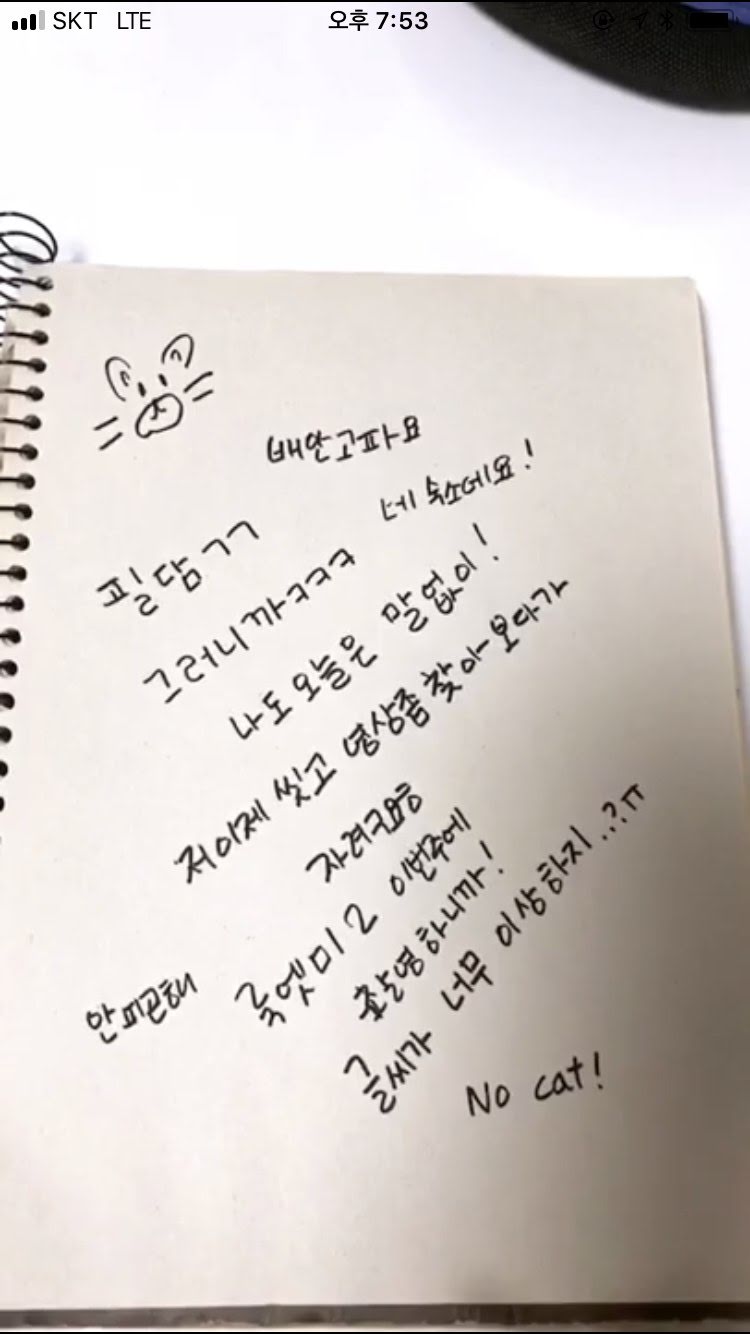 SKT LTE 오후 7:53
배안고파요
네 숙소데요!
필담ㄱㄱ
그러니까ㅋㅋㅋ
나도 오늘은 말없이!
저이제 씻고 영상좀 찾아보다가
자려구요
룩엣미2 이번주에
촬영하니까!
안피곤해
글씨가 너무 이상하지..?ㅠ
No cat!